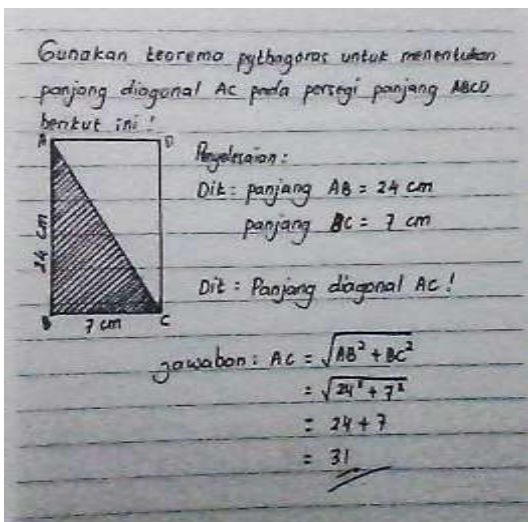 Gunakan teorema pythagoras untuk menentukan
panjang diagonal AC pada persegi panjang ABCD
berikut ini !
A D
24 cm
B 7 cm C
Penyelesaian :
Dik : panjang AB = 24 cm
panjang BC = 7 cm
Dit : Panjang diagonal AC !
Jawaban : AC = √AB² + BC²
= √24² + 7²
= 24 + 7
= 31